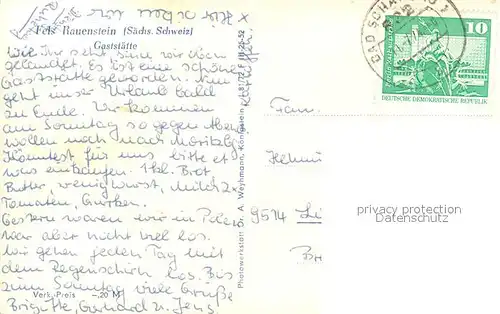 x Hier
Fels Rauenstein (Sächs. Schweiz)
Gaststätte
Wie Ihr seht sind wir oben
gelandet. Es ist eine schöne
Gaststätte geworden. Nun
geht unser Urlaub bald
zu Ende. Wir kommen
am Sonntag so gegen Abend
wollen noch nach Moritzbg.
Könntest für uns bitte et
was einkaufen. 1 Stl. Brot
Butter, wenig Wurst, Milch 2x
Tomaten, Gurken.
Gestern waren wir in Polen
war aber nicht viel los.
Wir gehen jeden Tag mit
dem Regenschirm los. Bis
zum Sonntag viele Grüße
Brigitte, Gerhard u. Jens
Verk.-Preis -,20 M
Photowerkstatt Dr. A. Weyhmann, Königstein
BAD SCHANDAU 1
10
DEUTSCHE DEMOKRATISCHE REPUBLIK
Fam.
Helmut
9514
privacy protection
Datenschutz